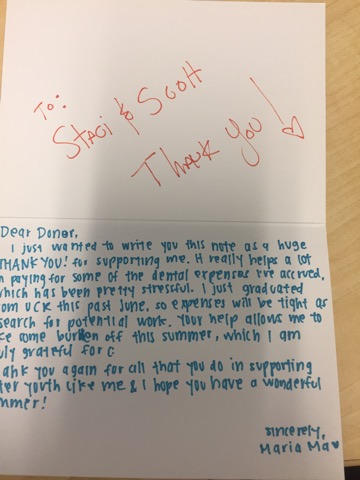 To:
Staci & Scott
Thank You!
Dear Donor,
I just wanted to write you this note as a huge
THANK YOU! for supporting me. It really helps a lot
in paying for some of the dental expenses I've accrued,
which has been pretty stressful. I just graduated
from this past June, so expenses will be tight as
search for potential work. Your help allows me to
some burden off this summer, which I am
truly grateful for
again for all that you do in supporting
youth like me & I hope you have a wonderful
summer!
Sincerely,
Maria Ma